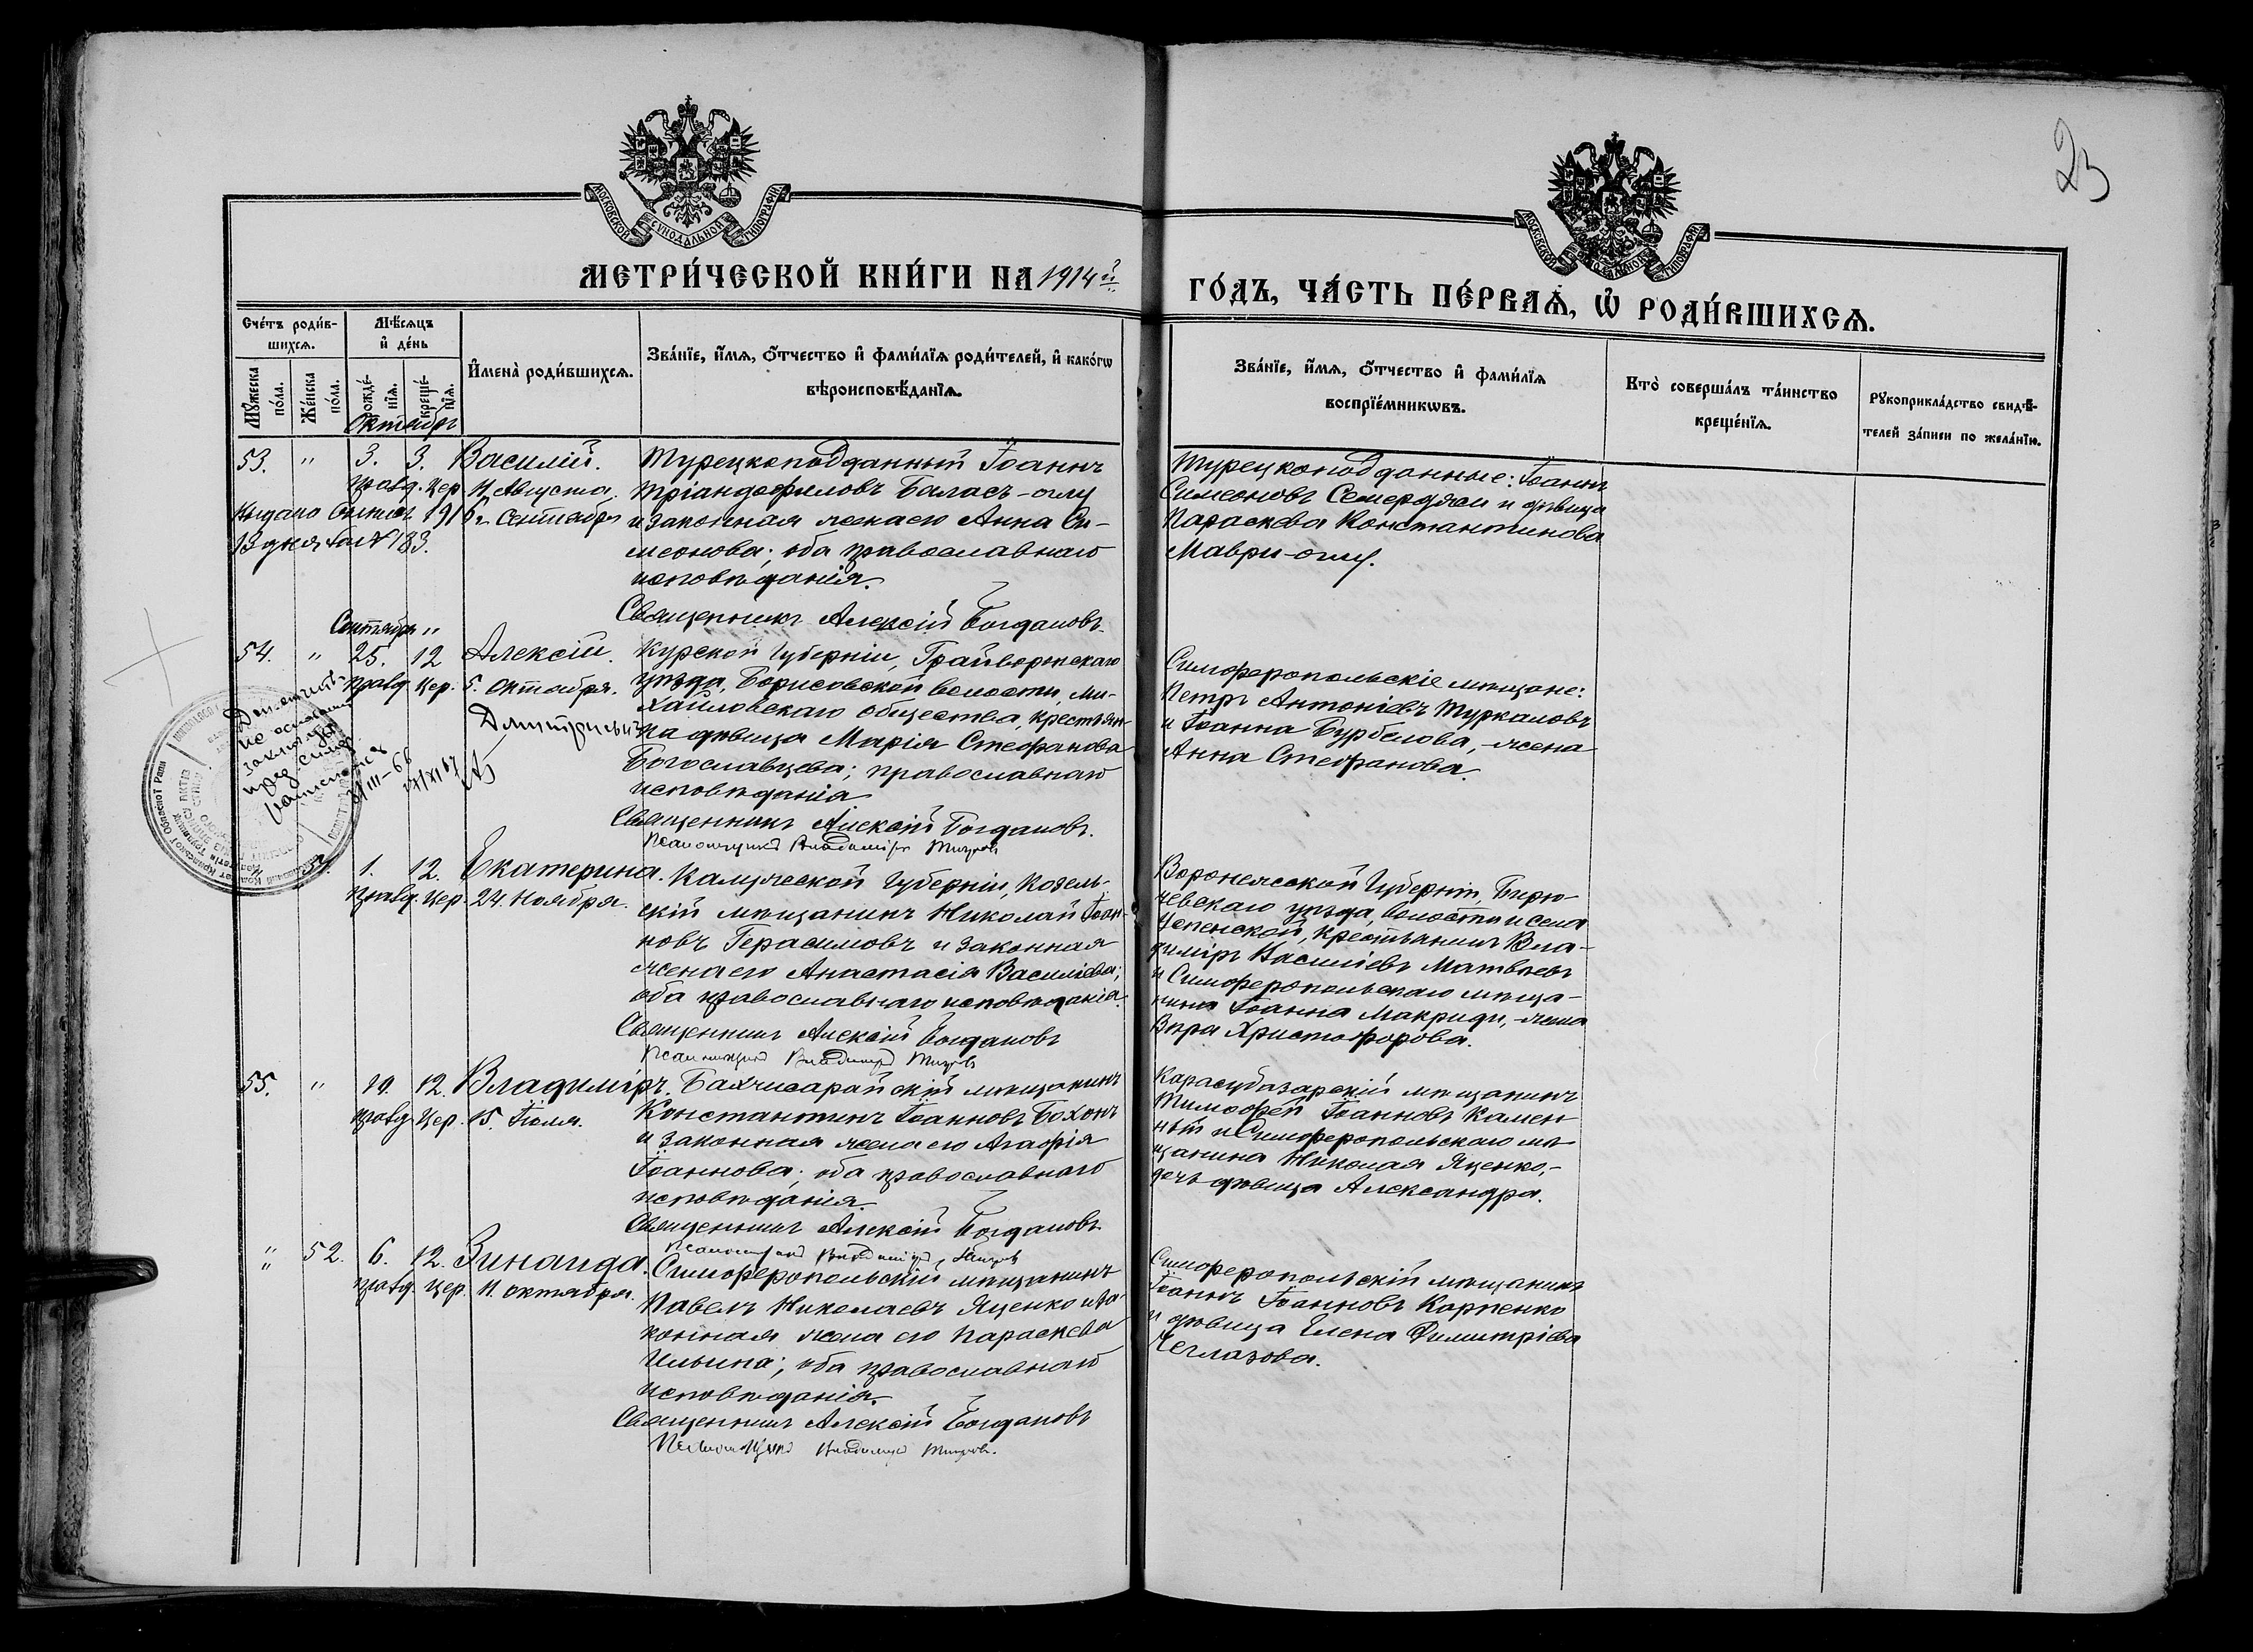 23
МОСКОВСКОЙ СѴНОДАЛЬНОЙ ТИПОГРАФІИ
МОСКОВСКОЙ СѴНОДАЛЬНОЙ ТИПОГРАФІИ
МЕТРИ́ЧЕСКОЙ КНИ́ГИ НА 1914й
ГО́ДЪ, ЧА́СТЬ ПЕ́РВАѦ, Ѽ РОДИ́ВШИХСѦ.
Сче́тъ роди́в-
шихсѧ.
Мѣ́сѧцъ
и҆ де́нь
Мꙋ́жеска по́ла.
Же́нска по́ла.
рожде́-
нїѧ.
креще́-
нїѧ.
И҆мена̀ роди́вшихсѧ.
Зва́нїе, и҆́мѧ, ѻ҆́тчество и҆ фами́лїѧ роди́телей, и҆ како́гѡ
вѣроисповѣ́данїѧ.
Зва́нїе, и҆́мѧ, ѻ҆́тчество и҆ фами́лїѧ
воспрїе́мникѡвъ.
Кто̀ соверша́лъ та́инство
креще́нїѧ.
Рꙋкоприкла́дство свидѣ́-
телей за́писи по жела́нїю.
Октябрь
53. " 3. 3. Василій.
правд. цер. 11 Августа,
Выдано 1916 г. Сентября
13 дня за № 183.
Турецкоподданный Іоаннъ
Тріандафиловъ Баласъ-оглу
и законная жена его Анна Си-
меонова; оба православнаго
исповѣданія.
Священникъ Алексій Богдановъ
Турецкоподданные: Іоаннъ
Симеоновъ Семерджи и дѣвица
Параскева Константинова
Маври-оглу.
Сентябрь "
54. " 25. 12 Алексій.
правд. цер. 5. Октября.
Дмитріевичъ
Курской Губерніи, Грайворонскаго
уѣзда, Борисовской волости, Ми-
хайловскаго общества, крестьян-
ка дѣвица Марія Стефанова
Богославцева; православнаго
исповѣданія
Священникъ Алексій Богдановъ.
Псаломщикъ Владиміръ
Симферопольскіе мѣщане:
Петръ Антоніевъ Туркаловъ
и Іоанна Бурбелова, жена
Анна Стефанова.
31/III-66
51. 1. 12. Екатерина.
правд. цер. 24. Ноября.
Калужской Губерніи, Козель-
скій мѣщанинъ Николай Іоан-
новъ Герасимовъ и законная
жена его Анастасія Василіева;
оба православнаго исповѣданія.
Священникъ Алексій Богдановъ
Псаломщикъ Владиміръ
Воронежской Губерніи, Бирю-
чевскаго уѣзда, волости и села
Успенской, крестьянинъ Вла-
диміръ Василіевъ Матвѣевъ
и Симферопольскаго мѣща-
нина Іоанна Макриди, жена
Вѣра Христофорова.
55. " 10. 12. Владиміръ.
правд. цер. 15. Іюля.
Бахчисарайскій мѣщанинъ
Константинъ Іоанновъ Бохонъ
и законная жена его Агафія
Іоаннова; оба православнаго
исповѣданія.
Священникъ Алексій Богдановъ
Псаломщикъ Владиміръ
Карасубазарскій мѣщанинъ
Тимофей Іоанновъ Камен-
ный и Симферопольскаго мѣ-
щанина Николая Яценко,-
дочь дѣвица Александра.
" 52. 6. 12. Зинаида.
правд. цер. 11. Октября.
Симферопольскій мѣщанинъ
Павелъ Николаевъ Яценко и за-
конная жена его Параскева
Ильина; оба православнаго
исповѣданія.
Священникъ Алексій Богдановъ
Псаломщикъ Владиміръ
Симферопольскій мѣщанинъ
Іоаннъ Іоанновъ Карпенко
и дѣвица Елена Димитріева
Чеглазова.